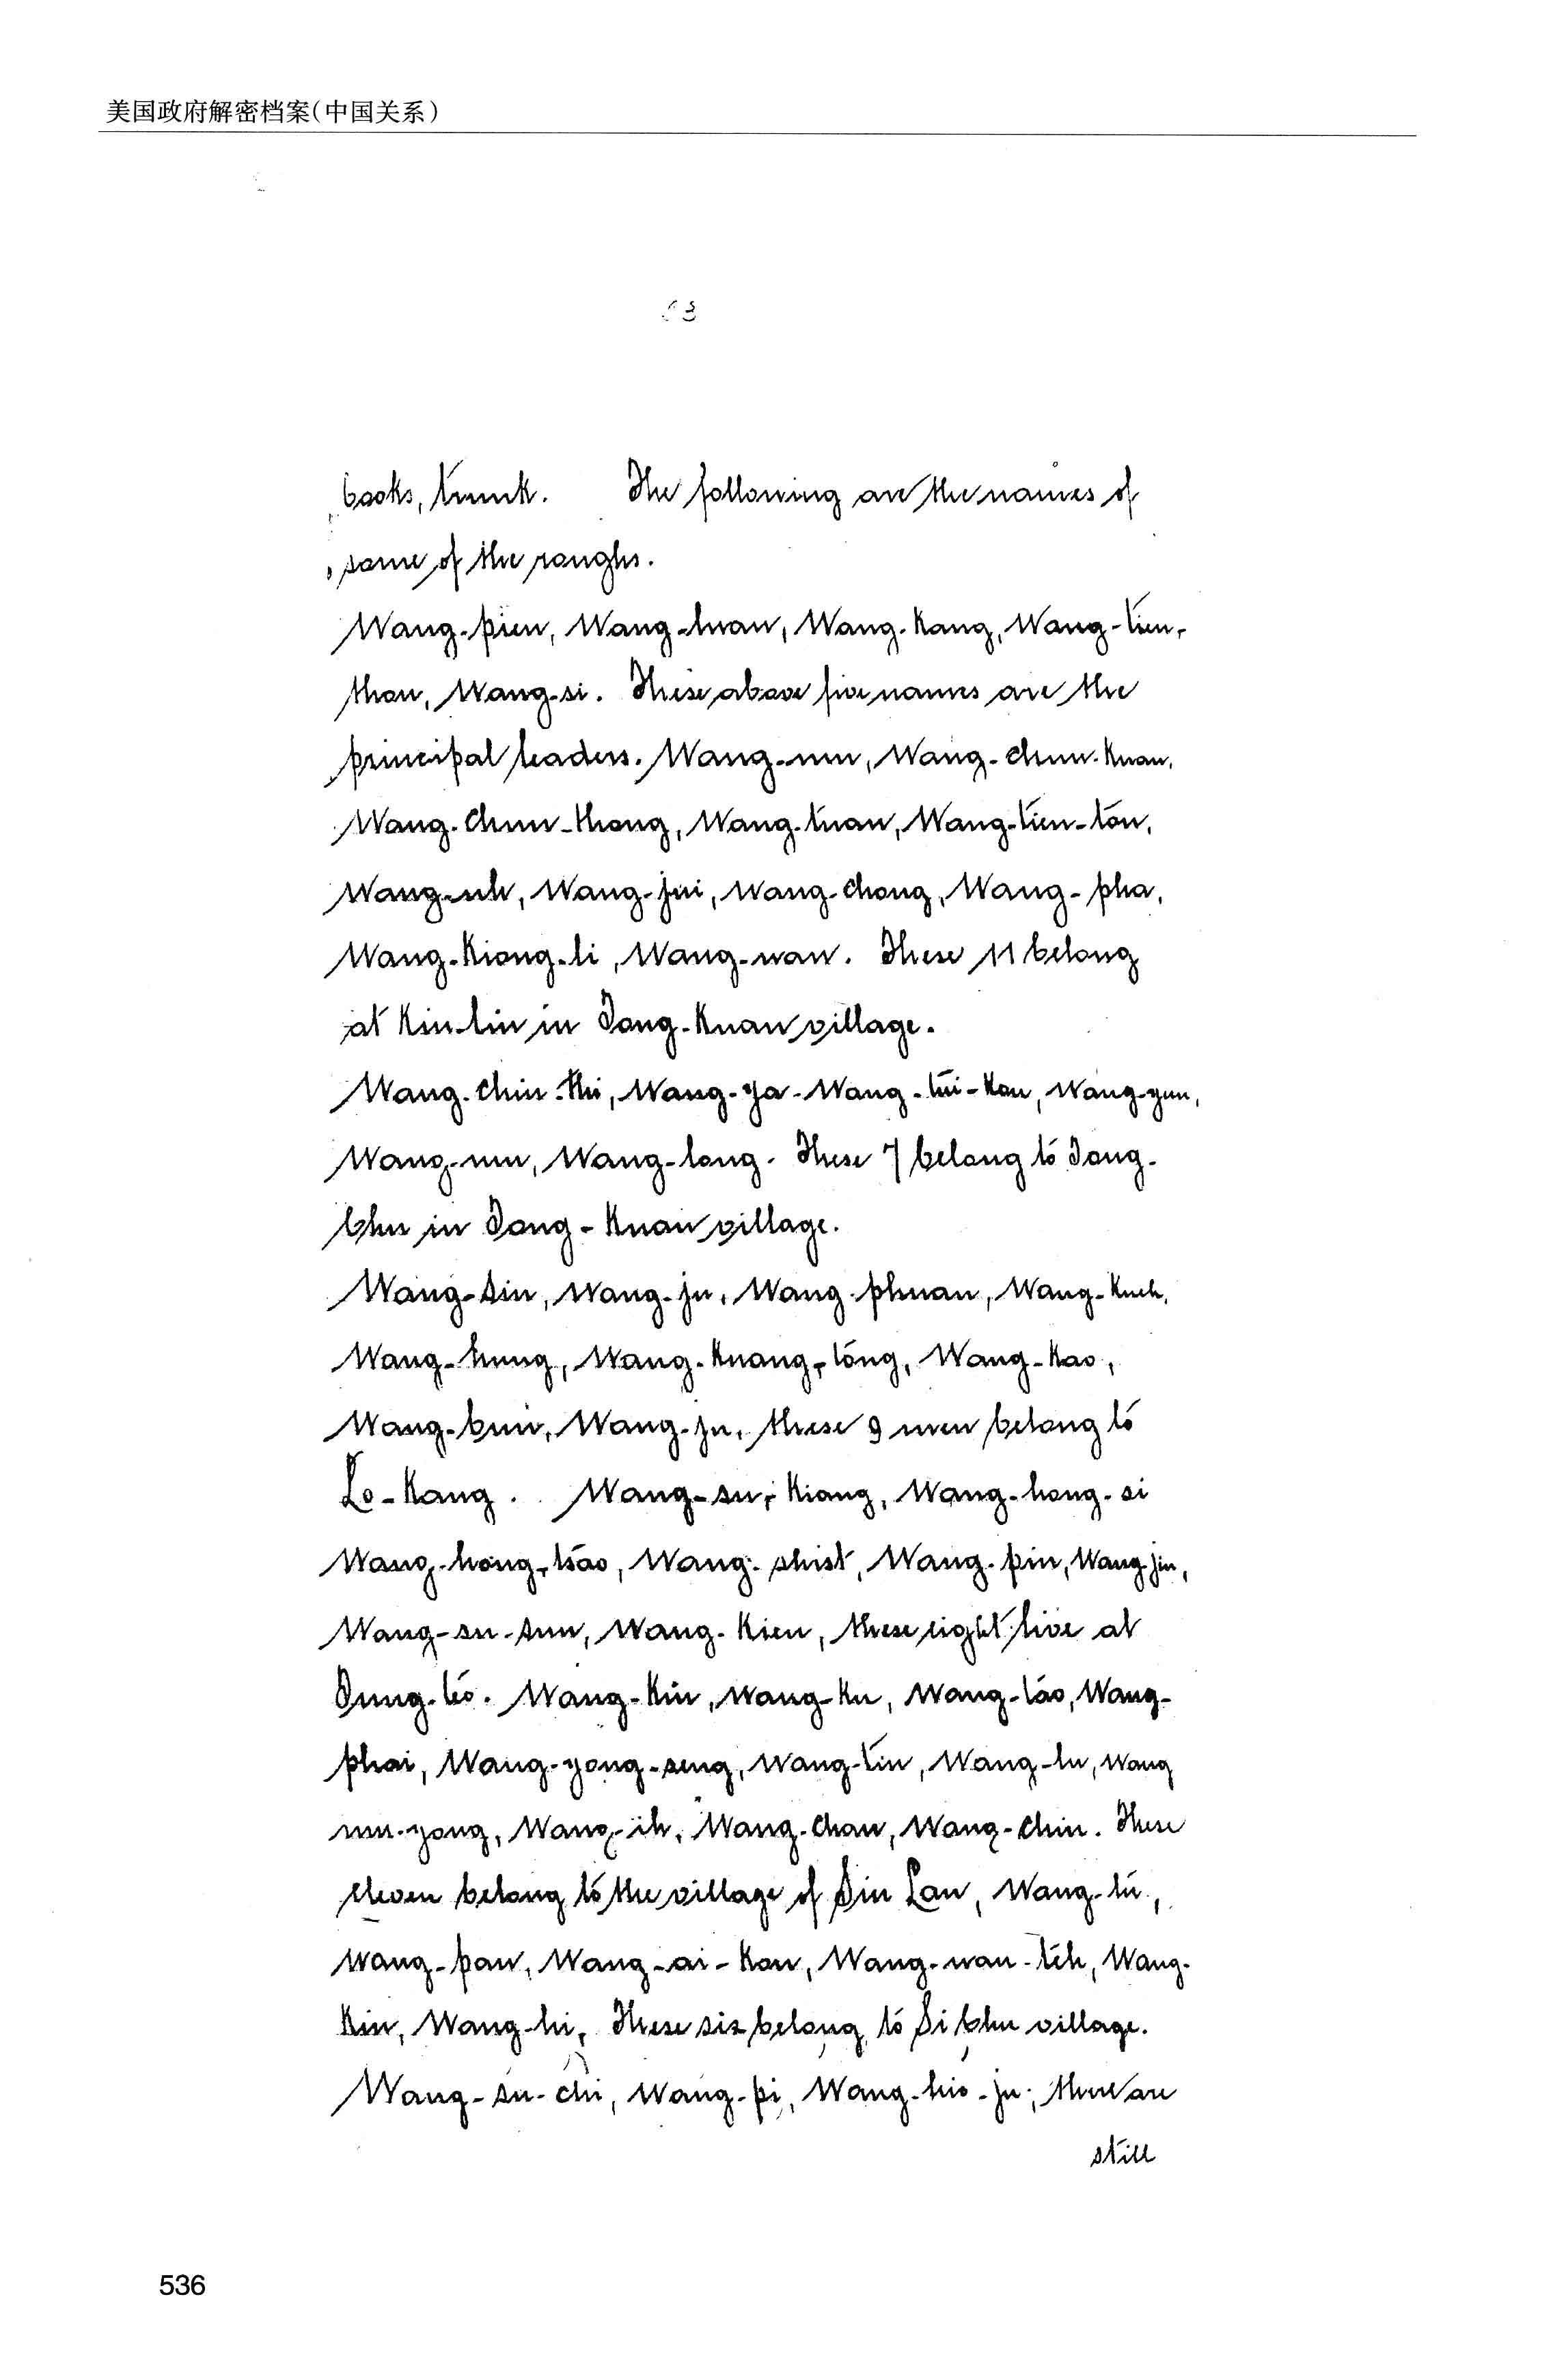 美国政府解密档案(中国关系)
books, trunk. The following are the names of
some of the roughs.
Wang-pien, Wang-hwan, Wang-Kang, Wang-tien-
than, Wang-si. These above five names are the
principal leaders. Wang-mu, Wang-Chun-Kuan,
Wang-Chun-thong, Wang-tuan, Wang-tien-tón,
Wang-uh, Wang-jui, Wang-chong, Wang-pha,
Wang-Kiong-li, Wang-wan. These 11 belong
at Kin-lin in Tong-Kuan village.
Wang-Chin-thi, Wang-ya-Wang-tui-Kau, Wang-yun,
Wang-mu, Wang-long. These 7 belong to Tong-
bhu in Tong-Kuan village.
Wang-Sin, Wang-ju, Wang-phuan, Wang-Kueh,
Wang-hung, Wang-Kuang-tóng, Wang-Kao,
Wang-bun, Wang-ju, these 9 men belong to
Lo-Kang. Wang-su-Kiang, Wang-hong-si
Wang-hong-tsao, Wang-shist, Wang-pin, Wang-jin,
Wang-su-sun, Wang-Kien, these eight live at
Tung-téo. Wang-Kin, Wang-Ku, Wang-táo, Wang-
phai, Wang-yong-seng, Wang-tin, Wang-lu, Wang
mu-yong, Wang-ih, Wang-Chan, Wang-Chin. These
eleven belong to the village of Sin Lan, Wang-tu,
Wang-pan, Wang-ai-Kau, Wang-wan-teh, Wang-
Kin, Wang-hi, These six belong to Si bhu village.
Wang-su-chi, Wang-pi, Wang-hio-ju; there are
still
536